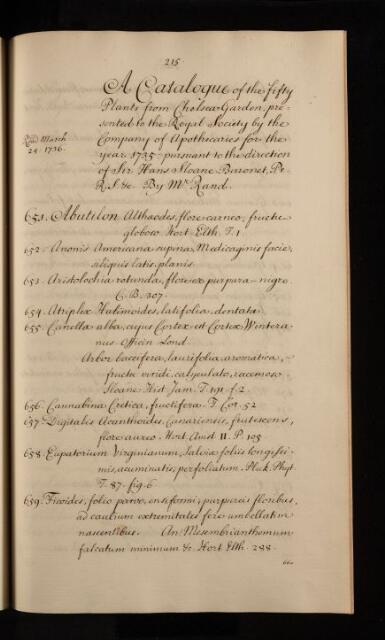 215
A Catalogue of the fifty
Plants from Chelsea-Garden, pre-
sented to the Royal Society by the
Company of Apothecaries for the
year 1735 pursuant to the direction
of Sir Hans Sloane Baronet, Pr.
R.S. &c. By Mr. Rand.
Read March
24. 1736.
651. Abutilon Althaeoides, flore carneo, fructu
globoso. Hort. Elth. T. 1
652. Anonis Americana supina, Medicaginis facie,
siliquis latis, planis
653. Aristolochia rotunda, flore ex purpura-nigro.
C. B. 307.
654. Atriplex Halimoides, latifolia, dentata.
655. Canella alba, cujus Cortex est Cortex Wintera-
nus Officin. Lond.
Arbor baccifera, laurifolia, aromatica,
fructu viridi, calyculato, racemoso.
Sloane Hist. Jam. T. 191. f. 2.
656. Cannabina Cretica, fructifera. T. Cor. 52
657. Digitalis Acanthoides, Canariensis, frutescens,
flore aureo. Hort. Amst. II. P. 105
658. Eupatorium Virginianum, Salviæ foliis longissi-
mis, acuminatis, perfoliatum. Pluk. Phyt.
T. 87. fig. 6.
659. Ficoides, folio parvo, ensiformi, purpureis floribus,
ad caulium extremitates fere umbellatim
nascentibus. An Mesembrianthemum
falcatum minimum &c. Hort. Elth. 288.
660.